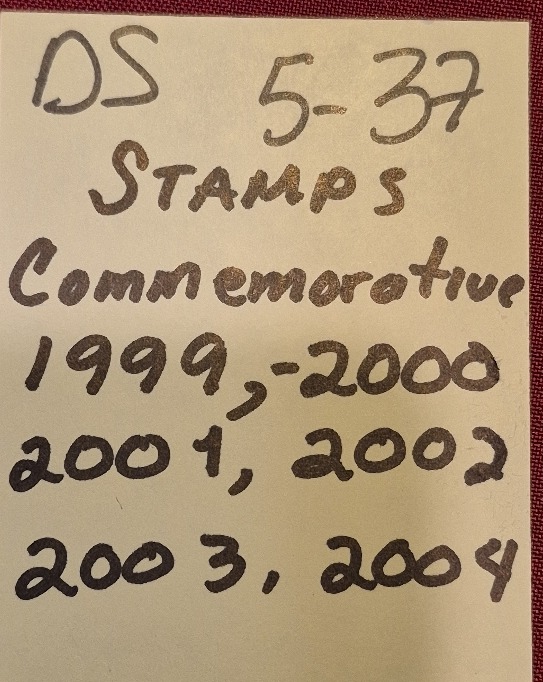 DS 5-37
STAMPS
Commemorative
1999,-2000
2001, 2002
2003, 2004